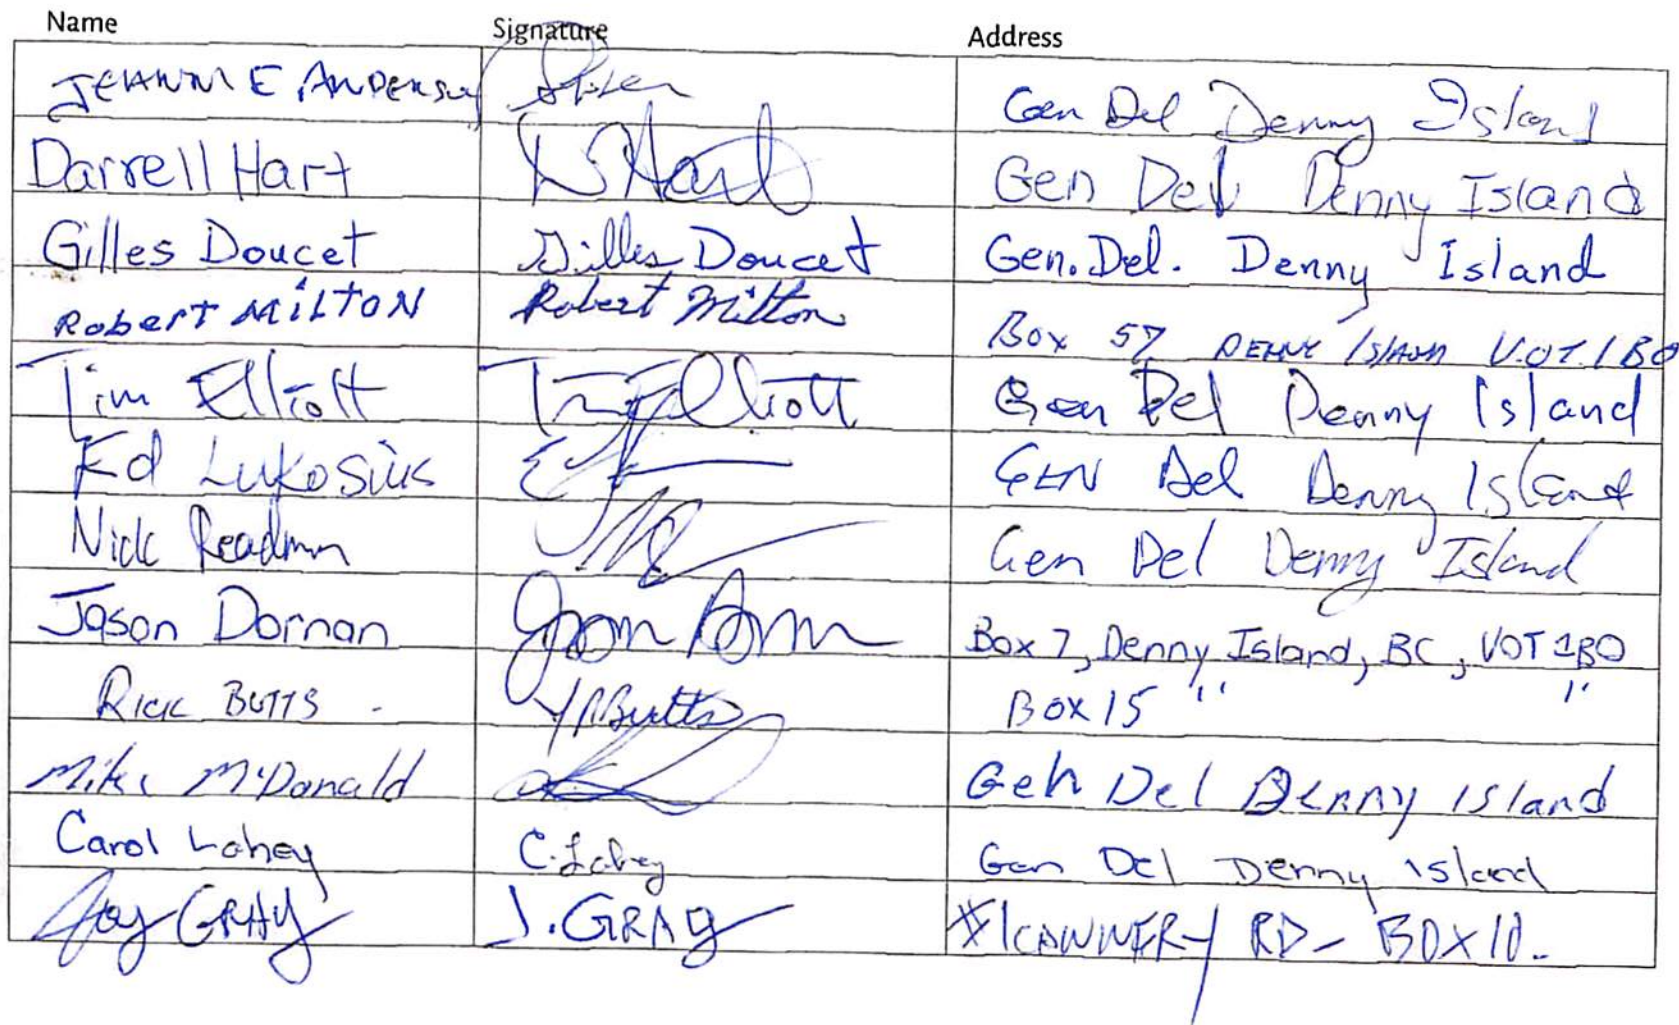 Name Signature Address
JEANNIE ANDERSON Gen Del Denny Island
Darrell Hart D Hart Gen Del Denny Island
Gilles Doucet Gilles Doucet Gen. Del. Denny Island
Robert MILTON Robert Milton Box 57 DENNY ISLAND V.O.T. 1B0
Tim Elliott Tim Elliott Gen Del Denny Island
Ed Lukosius GEN Del Denny Island
Nick Readman Gen Del Denny Island
Jason Dornan Jason Dornan Box 7, Denny Island, BC, V0T 1B0
RICK BUTTS RButts BOX 15 " "
Mike McDonald Gen Del Denny Island
Carol Lahey C. Lahey Gen Del Denny Island
Jay GRAY J. GRAY #1 CANNERY RD - BOX 10.